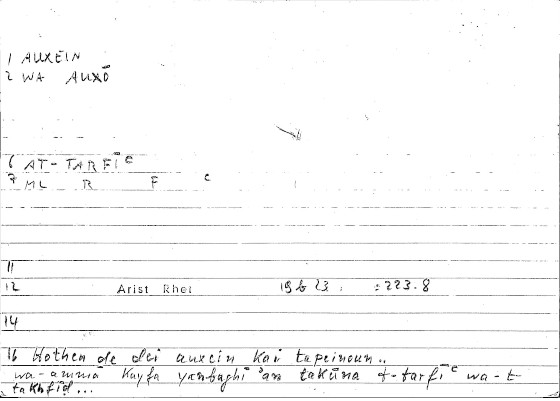 1 AUXEIN
2 WA AUXŌ
6 AT-TARFĪᶜ
7 ML R F ᶜ
11
12 Arist Rhet 19b23 : :223.8
14
16 Hothen de dei auxein kai tapeinoun..
wa-ammā kayfa yanbaghī 'an takūna t-tarfīᶜ wa-t-
takhfīḍ...